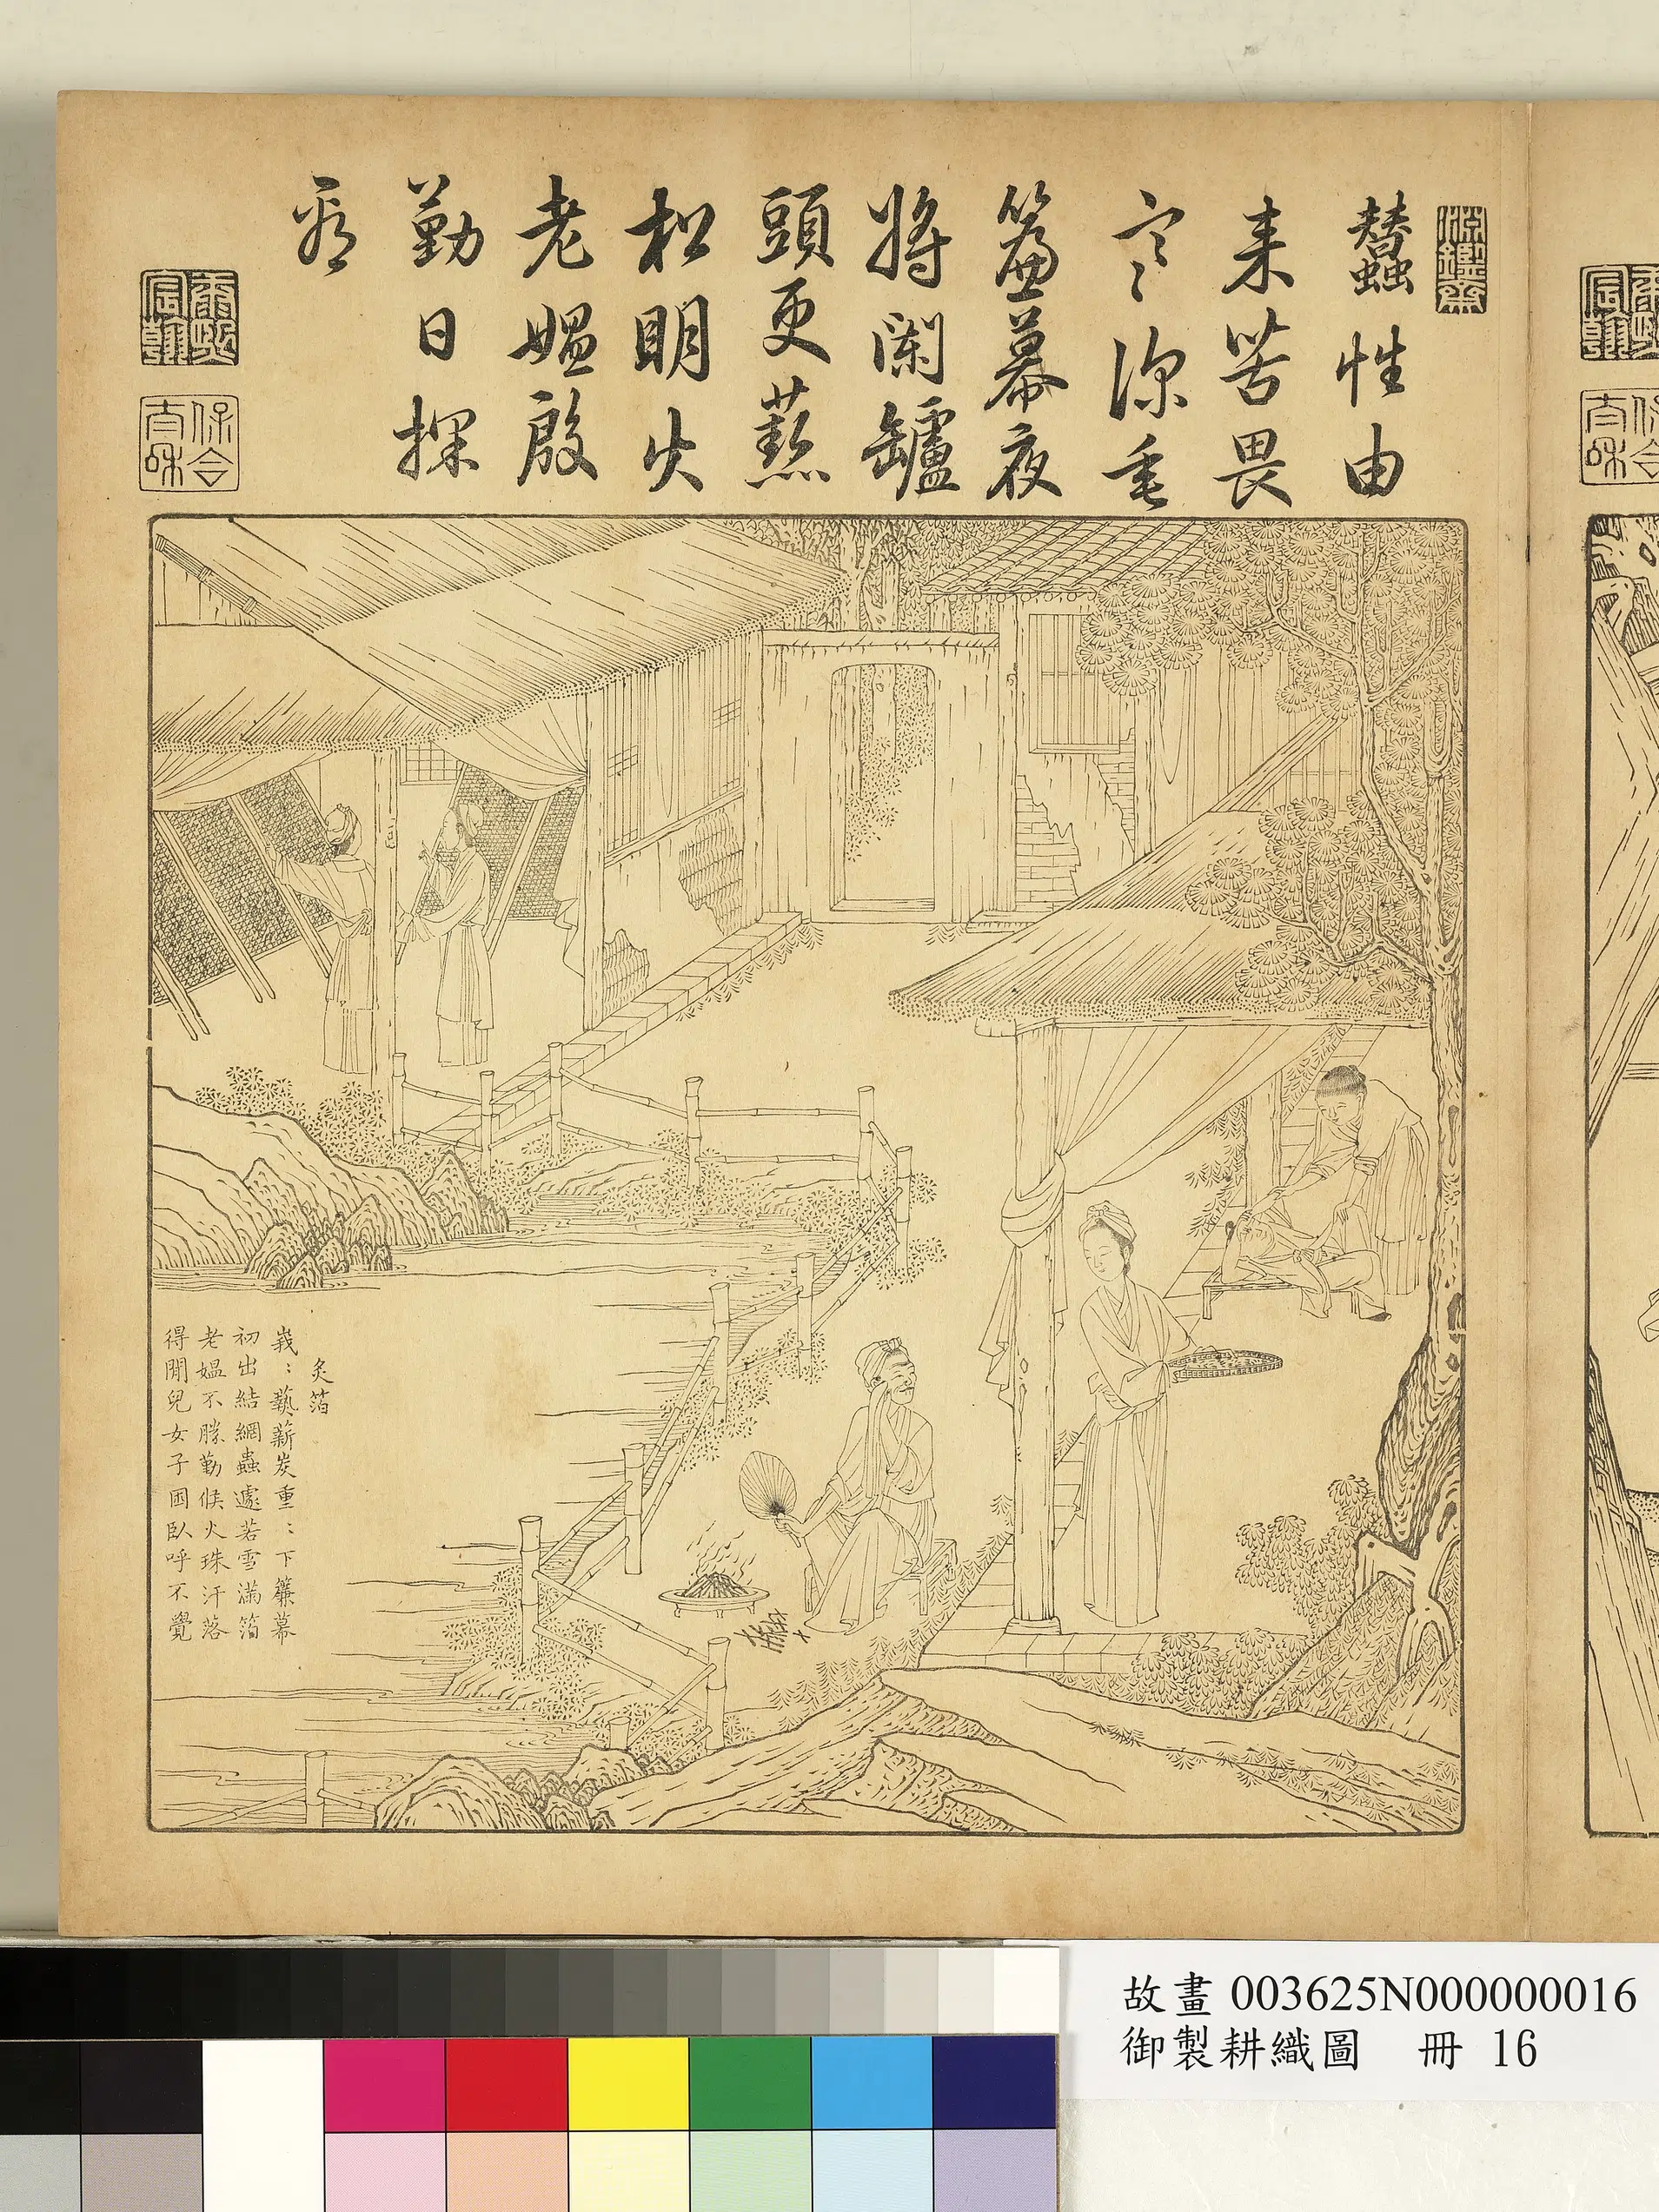 淵鑒齋
蠶性由
来苦畏
寒深垂
簾幕夜
將闌鑪
頭更爇
松明火
老媪殷
勤日探
看
康熙宸翰
保合太和
炙箔
峩:爇薪炭重:下簾幕
初出結網蟲遽若雪滿箔
老媪不勝勤候火珠汗落
得閒兒女子困臥呼不覺
故畫 003625N000000016
御製耕織圖 冊 16